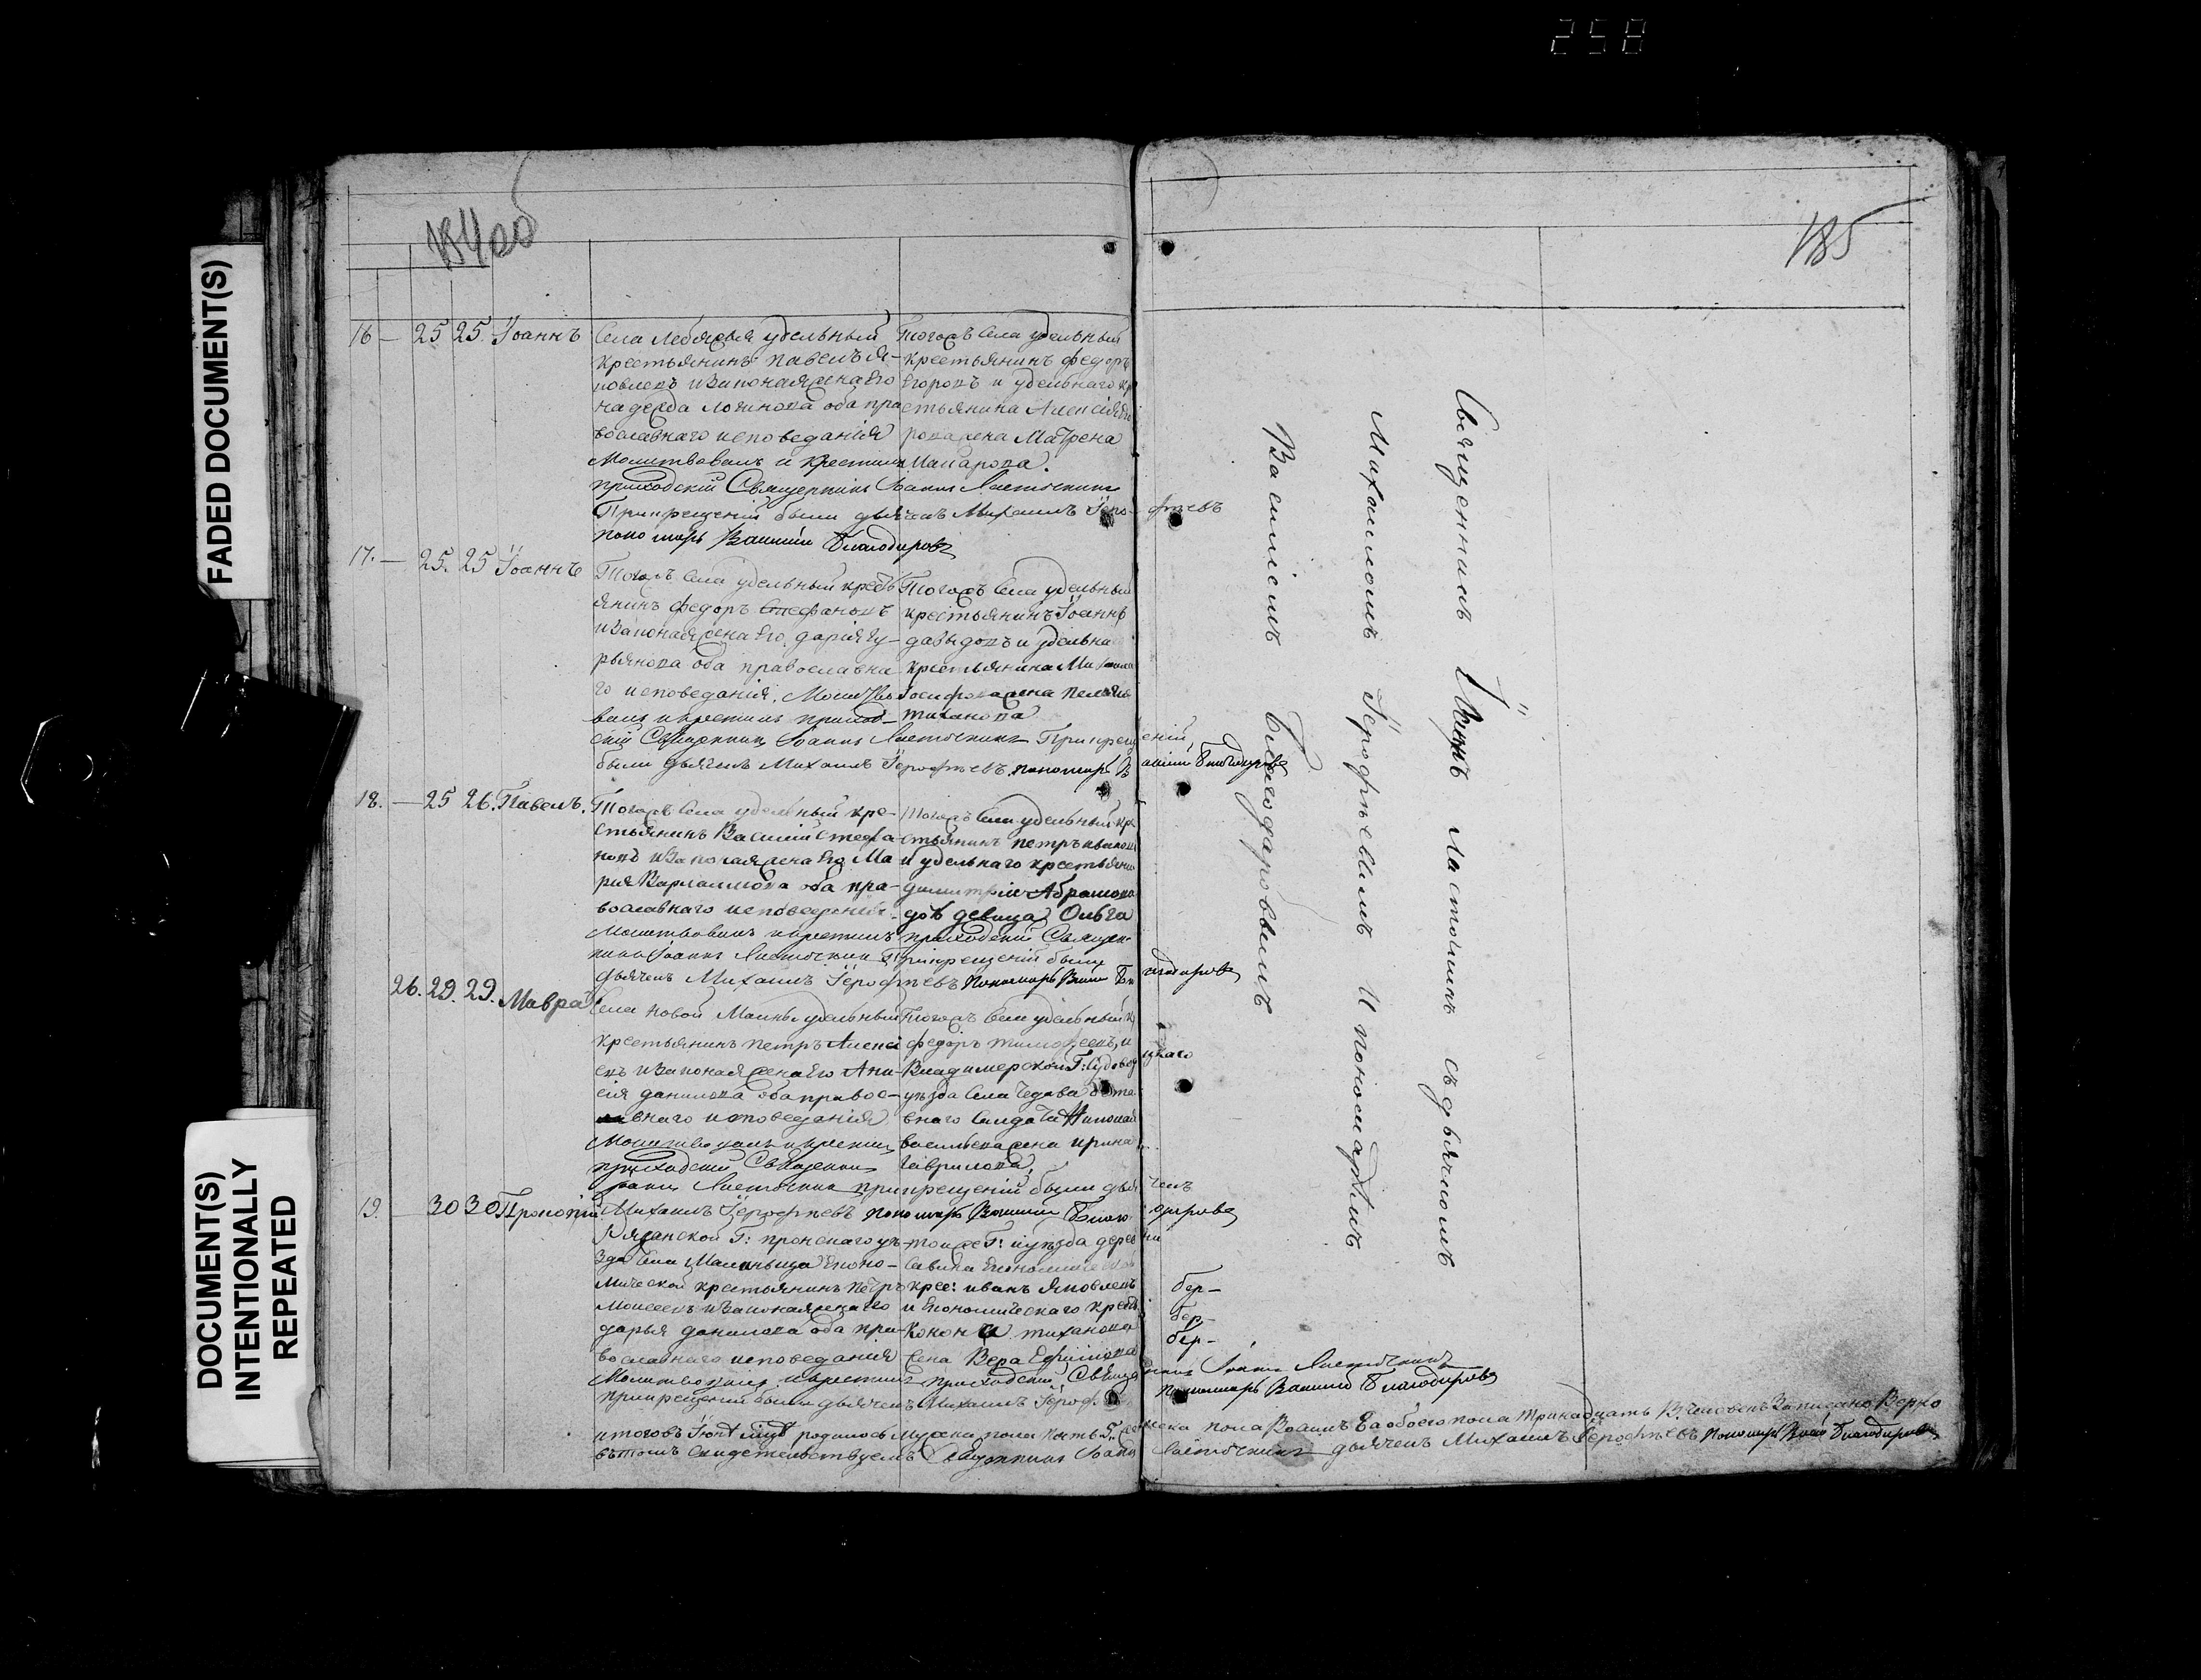 258
FADED DOCUMENT(S)
DOCUMENT(S)
INTENTIONALLY
REPEATED
184 об
185
16 — 25 25 Іоаннъ
Села Лебяжья удельный
крестьянинъ павелъ я-
ковлевъ и законная жена его
надежда логинова оба пра
вославнаго исповеданія
Молитвовалъ и крестилъ
приходскій Священникъ Іоаннъ Ласточкинъ
При крещеніи были дьячекъ Михаилъ Іеро- фѣевъ
пономарь Василій Благодаровъ
Тогожъ Села удельный
крестьянинъ федоръ
Егоровъ и удельнаго кр
естьянина Алексія
жена Матрена
Макарова.
17. — 25. 25 Іоаннъ
Тогожъ Села удельный крест
янинъ федоръ Стефановъ
и законная жена его дарія Гу-
рьянова оба православна
го исповеданія. Молитво
валъ и крестилъ приход-
скій Священникъ Іоаннъ Ласточкинъ При крещ еніи
были дьячекъ Михаилъ Іерофѣевъ пономарь В асилій Благодаровъ
Тогожъ Села удельный
крестьянинъ Іоаннъ
давыдовъ и удельна
крестьянина Михаила
Іосифова жена пелагія
тиханова
18. — 25 26. Павелъ.
Тогожъ Села удельный кре-
стьянинъ Василій Стефа-
новъ и законная жена его Ма
рія Варламова оба пра-
вославнаго исповеданія
Молитвовалъ и крестилъ приходскій Священ-
никъ Іоаннъ Ласточкинъ При крещеніи были
дьячекъ Михаилъ Іерофѣевъ пономарь Василій Бл агодаровъ
Тогожъ Села удельный кре
стьянинъ петръ
и удельнаго крестьянин
димитрія Абрамова
дочь девица Ольга
26. 29. 29. Мавра
Села Новой Маины удельный
крестьянинъ петръ Алексі
евъ и законная жена его Ани-
сія данилова оба правос-
лавнаго исповеданія
Молитвовалъ и крестилъ
приходскій Священникъ
Іоаннъ Ласточкинъ при крещеніи были дья чекъ
Михаилъ Іерофѣевъ пономарь Василій Благо даровъ
Тогожъ Села удельный кр
федоръ тимофеевъ, и
Владимерской Г:
уѣзда Села
внаго Солдата Николая
васильева жена ирина
Гаврилова.
19. — 30 30 Прокопій
Рязанской Г: пронскаго уѣ-
зда Села Маклинца Економ-
ической крестьянинъ петръ
Моисеевъ и законная жена его
дарья данилова оба пра-
вославнаго исповеданія
Молитвовалъ и крестилъ приходскій Свяще нникъ Іоаннъ Ласточкинъ
при крещеніи были дьячекъ Михаилъ Іероф. пономарь Василій Благодаровъ
тойже Г: и уѣзда дерев ни
Савина Економическ
крес: иванъ Яковлевъ
и Економическаго крест
Конона тиханова
жена Вера Ефимова
бер-
бер-
бер-
итого въ Іюнѣ мцѣ родилось Мужска пола пять женска пола восемь а обоего пола тринадцать человекъ Записано верно
въ томъ Свидетельствуемъ Священникъ Іоаннъ Ласточкинъ дьячекъ Михаилъ Іерофѣевъ пономарь Васил Благодаровъ
Священникъ Іоаннъ Ласточкинъ съ дьячкомъ
Михаиломъ Іерофѣевымъ и пономаремъ
Василіемъ Благодаровымъ